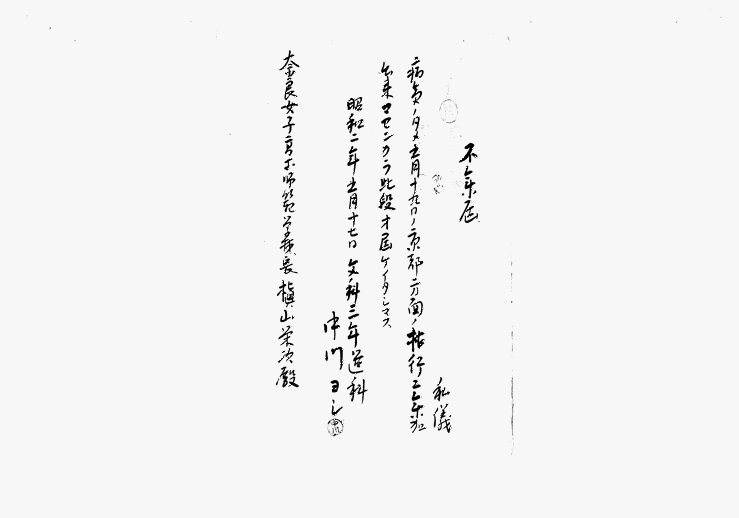 不参届
私儀
病気ノタメ五月十九日ノ京都方面ノ旅行ニ参加
出来マセンカラ此段オ届ケイタシマス
昭和二年五月十七日 文科三年選科
中川ヨシ
奈良女子高等師範学校長 槇山栄次殿